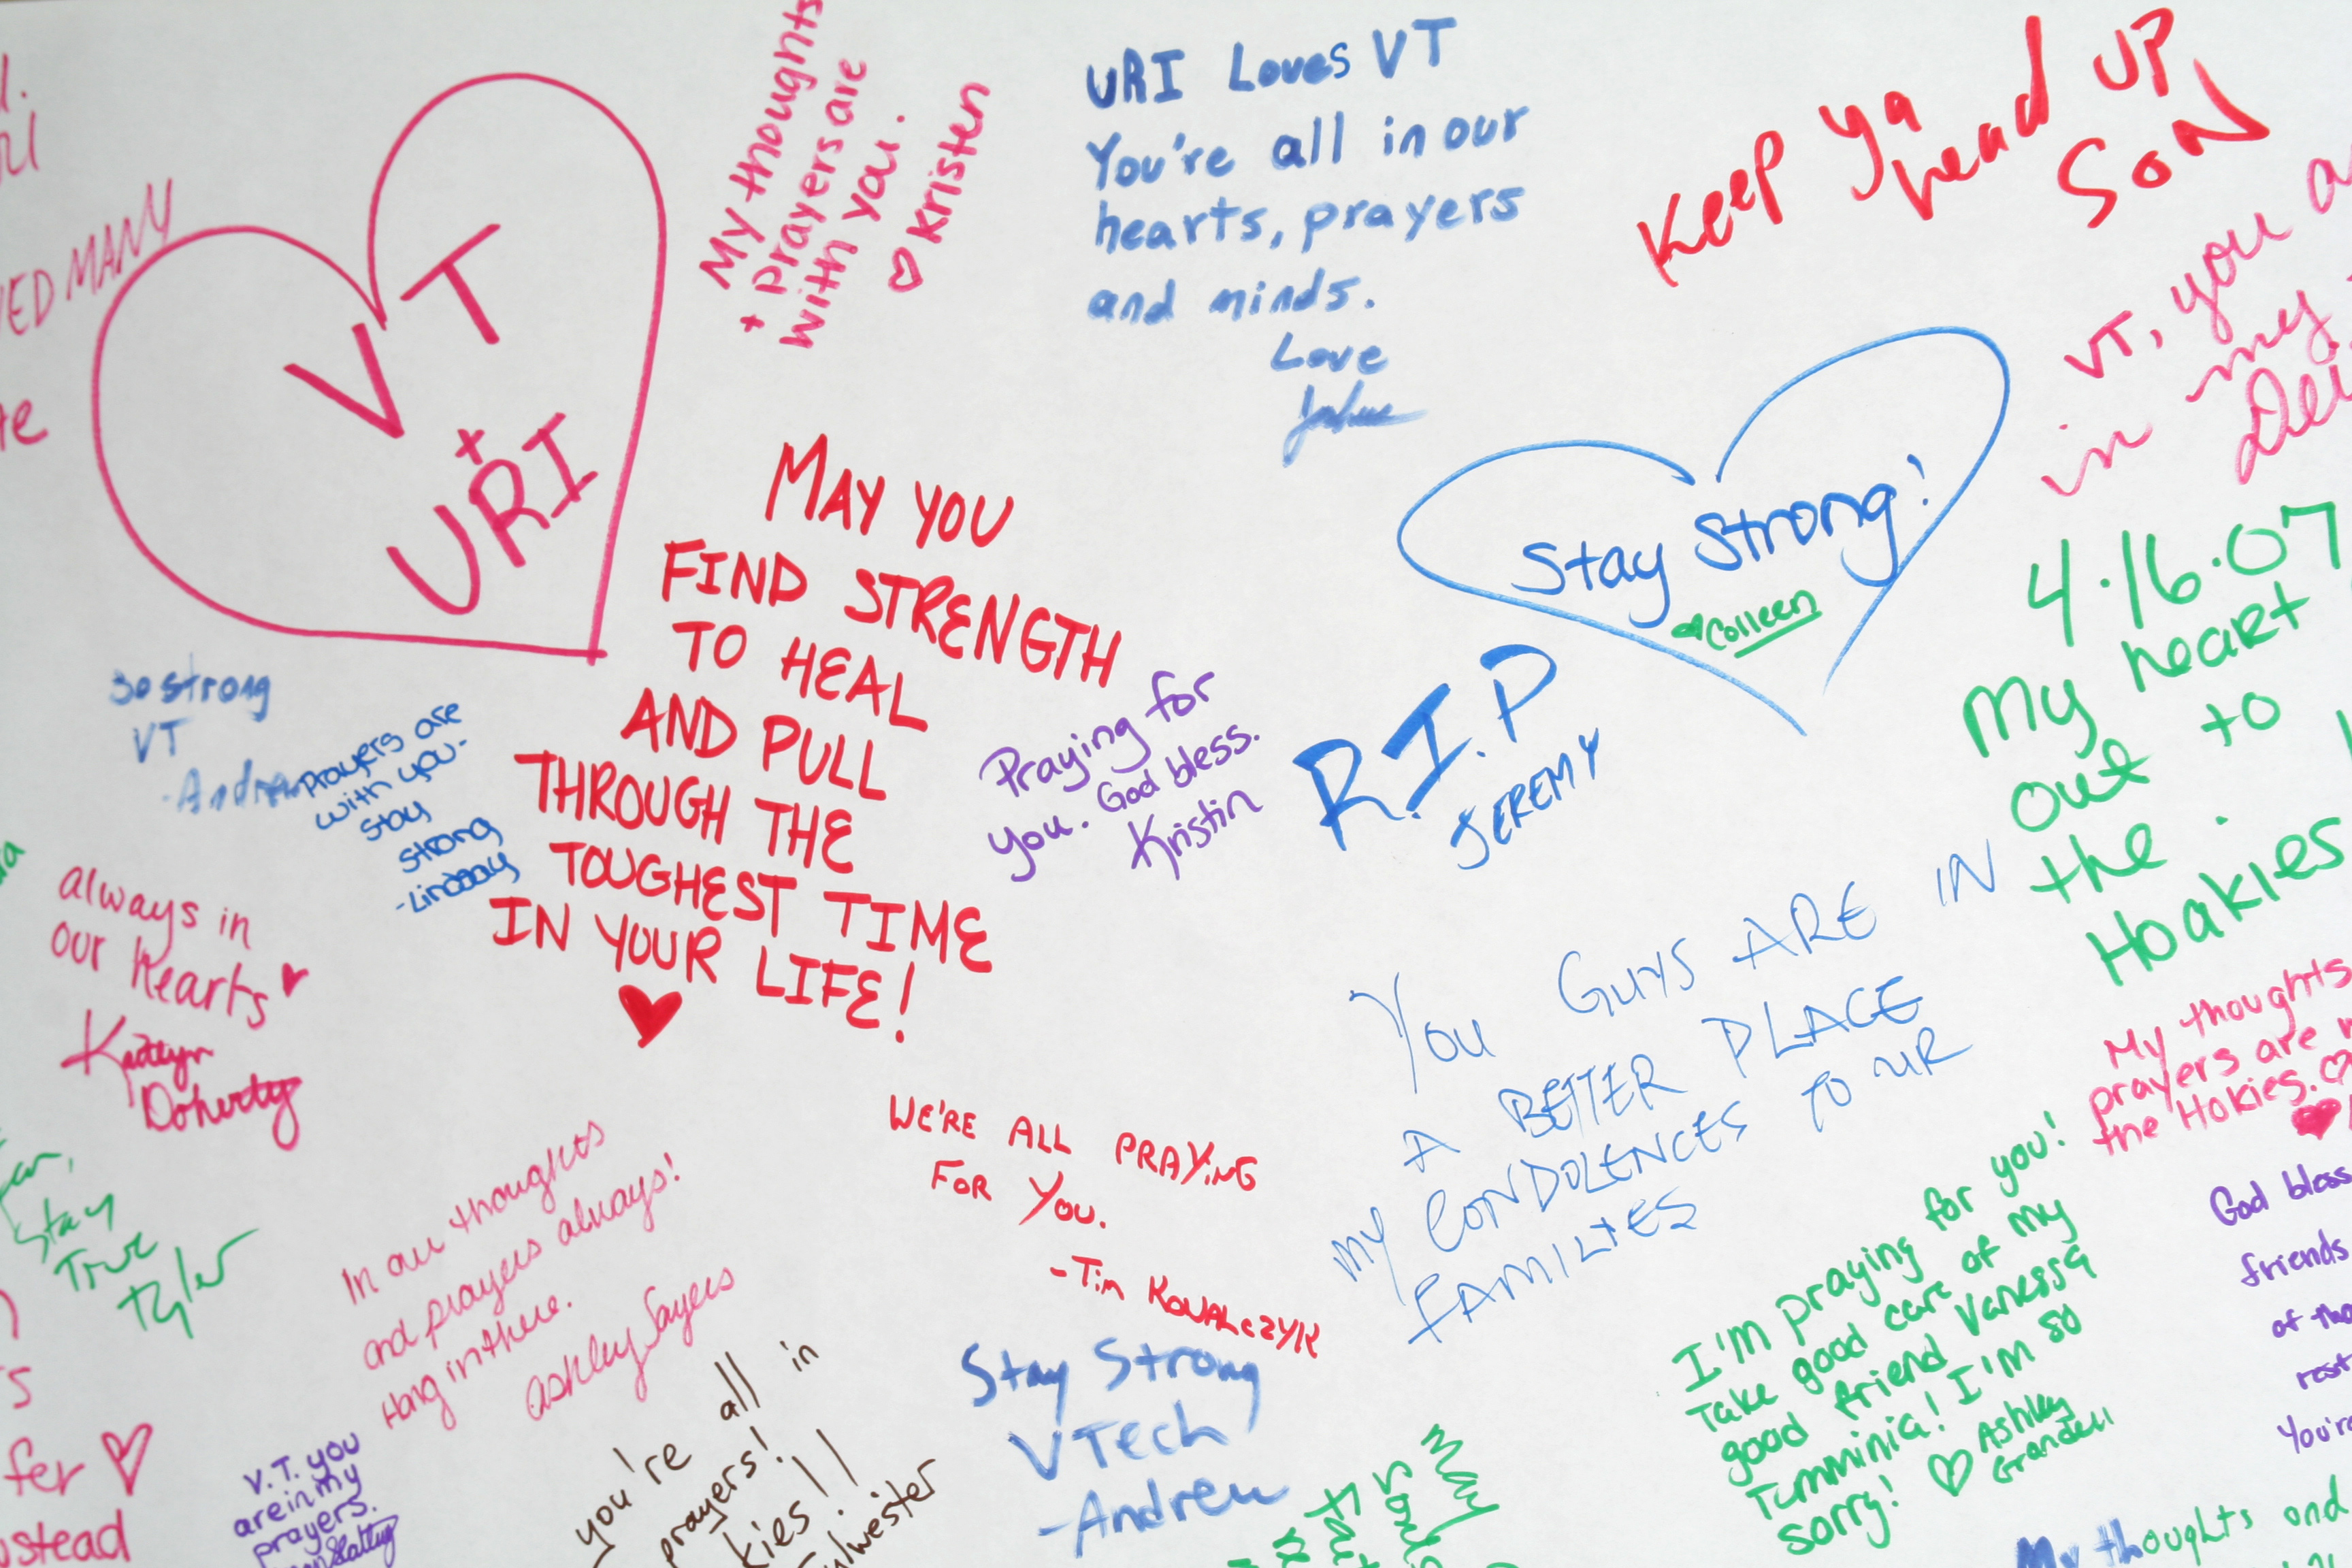 VED MANY
VT
+
URI
My thoughts
+ prayers are
with you.
♡ Kristen
URI Loves VT
You're all in our
hearts, prayers
and minds.
Love
Keep ya
head UP
SON
VT, you
in my
Stay Strong!
Colleen
4.16.07
My heart
out to
the
Hoakies
MAY YOU
FIND STRENGTH
TO HEAL
AND PULL
THROUGH THE
TOUGHEST TIME
IN YOUR LIFE!
so strong
VT
-Andrew
prayers are
with you-
stay
strong
-Lindsay
Praying for
you. God bless.
Kristin
R.I.P
JEREMY
always in
our hearts
Kaitlyn
Doherty
YOU GUYS ARE IN
A BETTER PLACE
MY CONDOLENCES TO UR
FAMILIES
My thoughts
prayers are
the Hokies.
Stay
True
Tyler
In our thoughts
and prayers always!
Hang in there.
Ashley Sayers
WE'RE ALL PRAYING
FOR YOU.
-Tim KOWALCZYK
I'm praying for you!
Take good care of my
good friend Vanessa
Tumminia! I'm so
sorry! ♡ Ashley
Grandell
God bless
friends
of
rest
You're
fer ♡
V.T. you
are in my
prayers.
you're all in
prayers!
kies!!
Stay Strong
VTech
-Andrew
May
My thoughts and